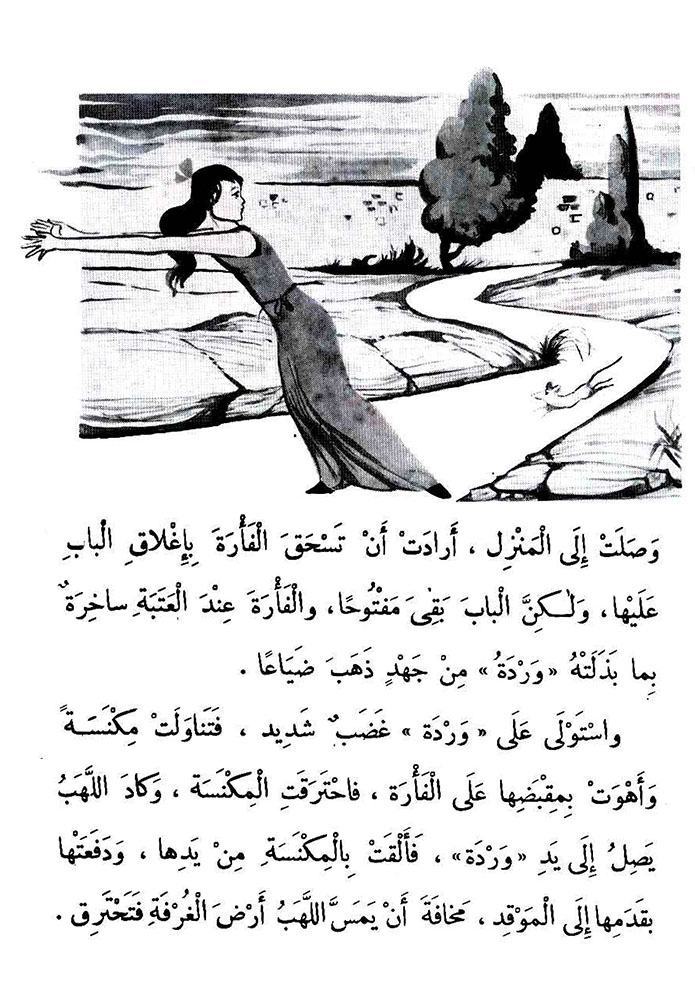 وَصَلَتْ إِلَى الْمَنْزِلِ ، أَرادَتْ أَنْ تَسْحَقَ الْفَأْرَةَ بِإِغْلاقِ الْبابِ
عَلَيْها ، وَلٰكِنَّ الْبابَ بَقِيَ مَفْتُوحًا ، والْفَأْرَةَ عِنْدَ الْعَتَبَةِ ساخِرَةٌ
بِما بَذَلَتْهُ « وَرْدَةُ » مِنْ جَهْدٍ ذَهَبَ ضَيَاعًا .
واسْتَوْلَى عَلَى « وَرْدَة » غَضَبٌ شَدِيد ، فَتَناوَلَتْ مِكْنَسَةً
وَأَهْوَتْ بِمِقْبَضِها عَلَى الْفَأْرَة ، فاحْتَرَقَتِ الْمِكْنَسَة ، وَكادَ اللَّهَبُ
يَصِلُ إِلَى يَدِ « وَرْدَة» ، فَأَلْقَتْ بِالْمِكْنَسَةِ مِنْ يَدِها ، وَدَفَعَتْها
بِقَدَمِها إِلَى الْمَوْقِد ، مَخافَةَ أَنْ يَمَسَّ اللَّهَبُ أَرْضَ الْغُرْفَةِ فَتَحْتَرِق .